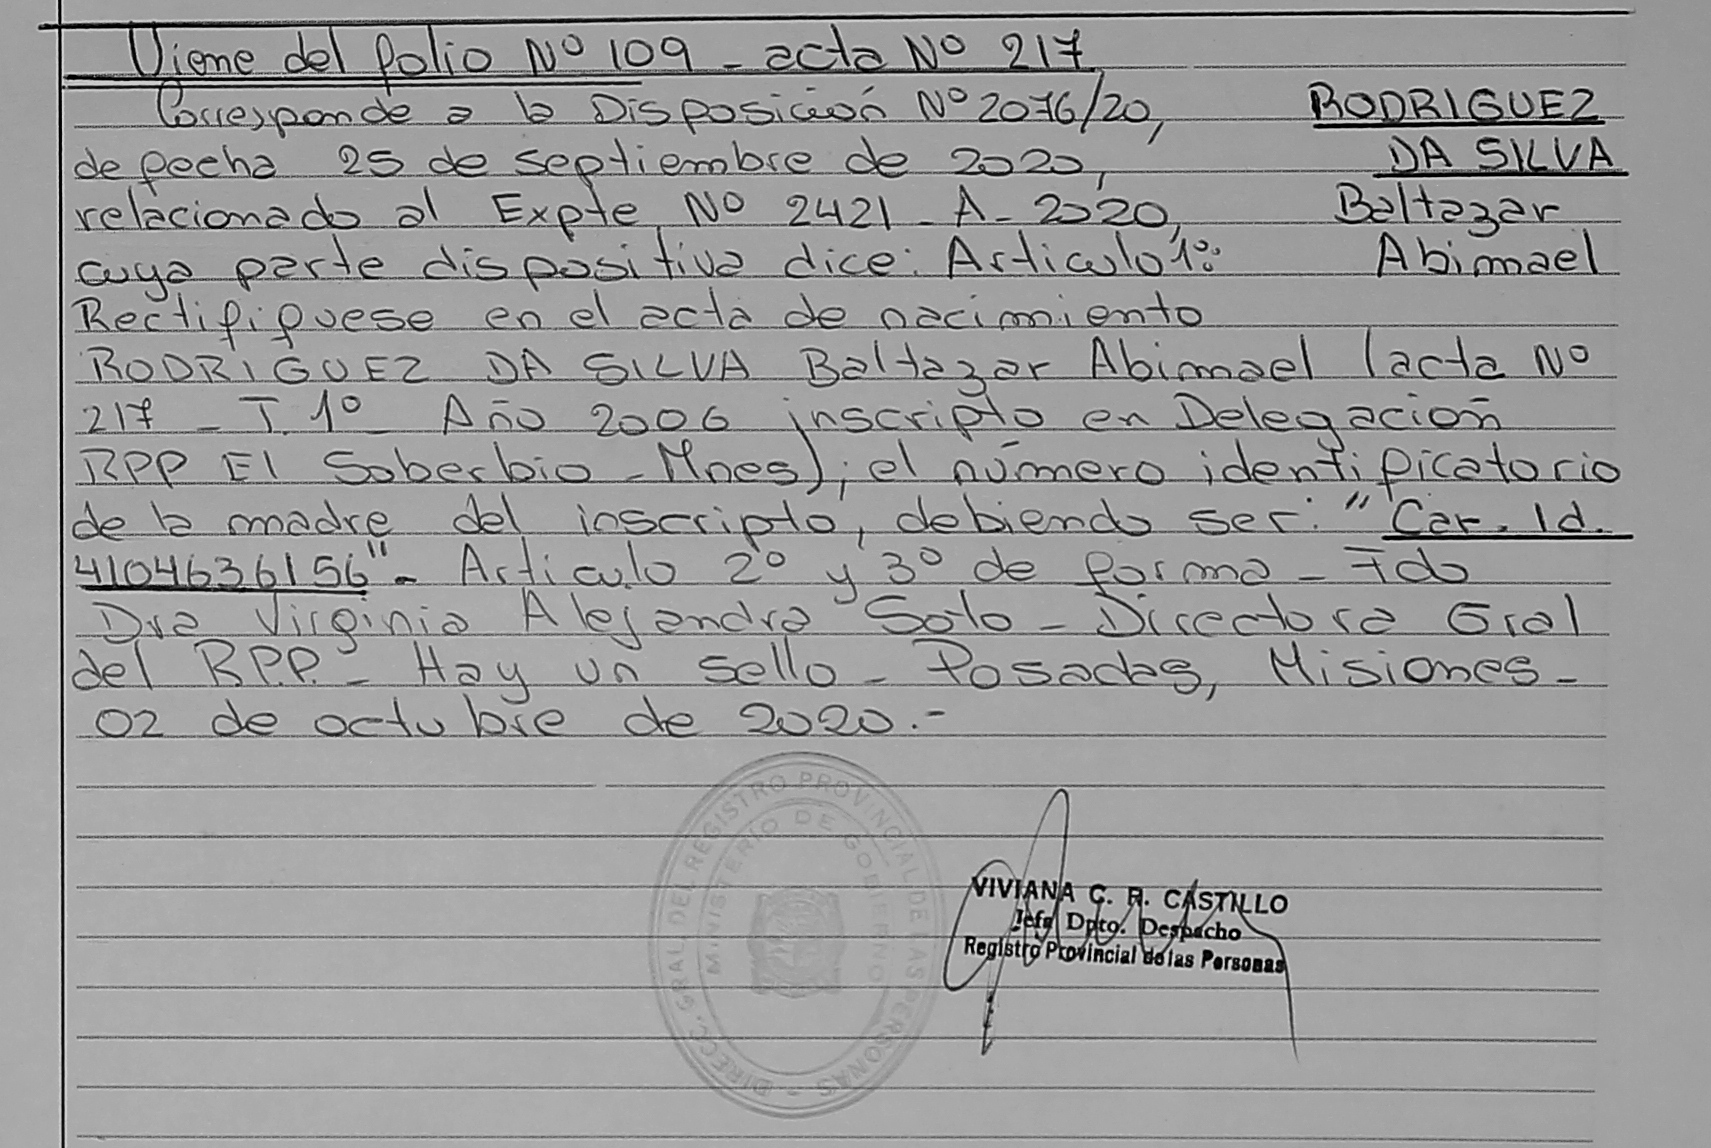 Viene del folio Nº 109 - acta Nº 217
Corresponde a la Disposición Nº 2076/20,
de fecha 25 de septiembre de 2020,
relacionado al Expte Nº 2421 - A - 2020,
cuya parte dispositiva dice: Articulo 1º:
Rectifiquese en el acta de nacimiento
RODRIGUEZ DA SILVA Baltazar Abimael (acta Nº
217 - T. 1º - Año 2006 inscripto en Delegación
RPP El Soberbio - Mnes); el número identificatorio
de la madre del inscripto, debiendo ser: "Car. Id.
4104636156" - Articulo 2º y 3º de forma - Fdo
Dra Virginia Alejandra Soto - Directora Gral
del R.P.P. - Hay un sello - Posadas, Misiones -
02 de octubre de 2020.-
RODRIGUEZ
DA SILVA
Baltazar
Abimael
DIRECC. GRAL. DEL REGISTRO PROVINCIAL DE LAS PERSONAS -
MINISTERIO DE GOBIERNO
VIVIANA C. R. CASTILLO
Jefa Dpto. Despacho
Registro Provincial de las Personas